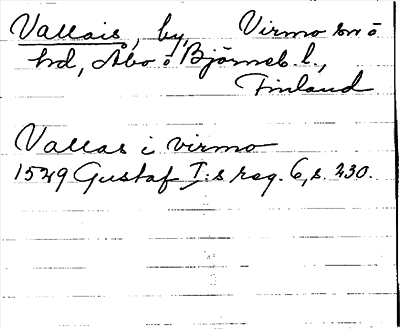 Vallais, by, Virmo sn o
hd, Åbo o Björneb. l.,
Finland
Vallas i virmo
1529 Gustaf I:s reg. 6, s. 230.